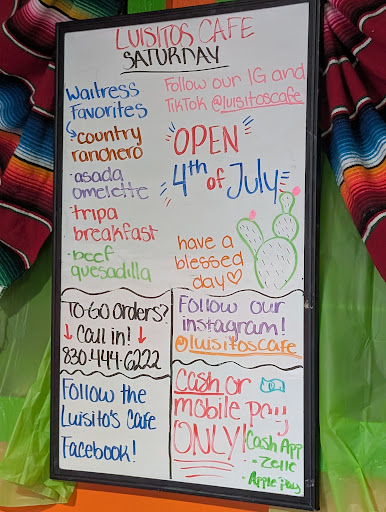 LUISITOS CAFE
SATURDAY
Waitress
Favorites
country
ranchero
• asada
omelette
• tripa
breakfast
• beef
quesadilla
Follow our IG and
TikTok @luisitoscafe
OPEN
4th of July
have a
blessed
day♡
TO-GO Orders?
↓ Call in! ↓
830-444-6222
Follow our
instagram!
@luisitoscafe
Follow the
Luisito's Cafe
Facebook!
Cash or
mobile pay
ONLY!
Cash App
• Zelle
• Apple pay